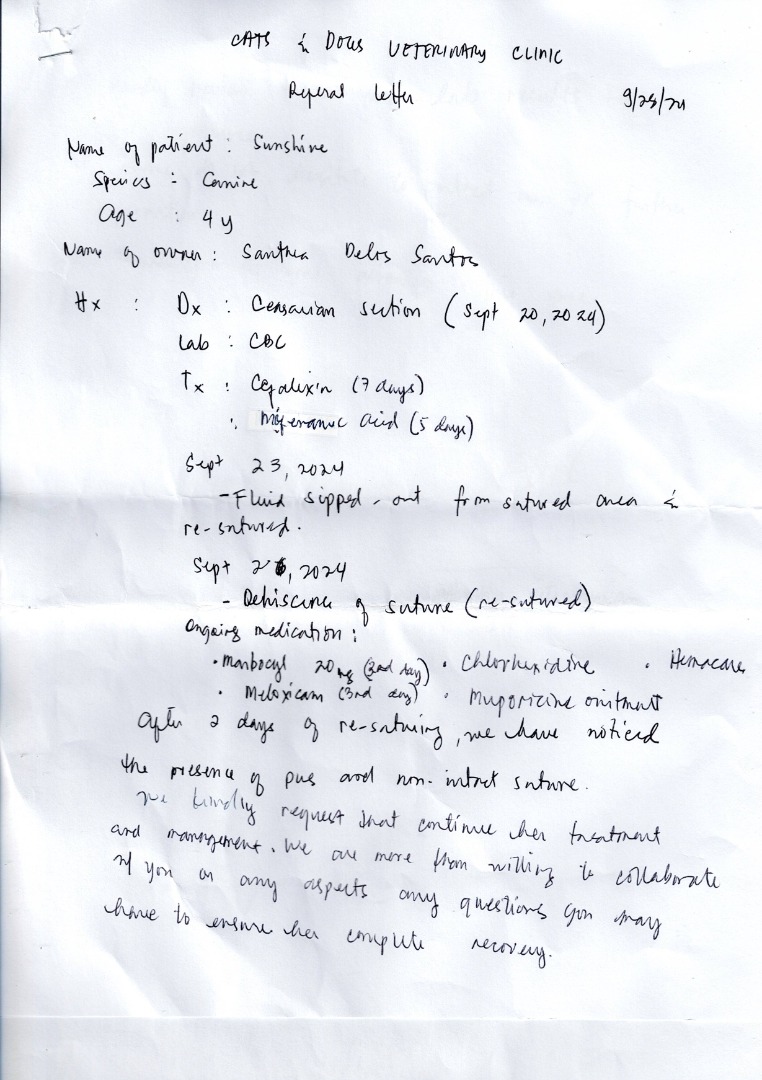 CATS & DOGS VETERINARY CLINIC
Referal letter 9/28/24
Name of patient : Sunshine
Species : Canine
Age : 4 y
Name of owner : Santhea Delos Santos
Hx : Dx : Ceasarian section (Sept 20, 2024)
Lab : CBC
Tx : Cefalexin (7 days)
: Mefenamic acid (5 days)
Sept 23, 2024
- Fluid sipped - out from sutured area &
re-sutured.
Sept 26, 2024
- Dehiscence of suture (re-sutured)
Ongoing medication :
• Marbocyl 20 mg (2nd day) • Chlorhexidine • Hemacare
• Meloxicam (3rd day) • Muporicine ointment
After 2 days of re-suturing, we have noticed
the presence of pus and non-intact suture.
We kindly request that continue her treatment
and management. We are more than willing to collaborate
w/ you on any aspects any questions you may
have to ensure her complete recovery.